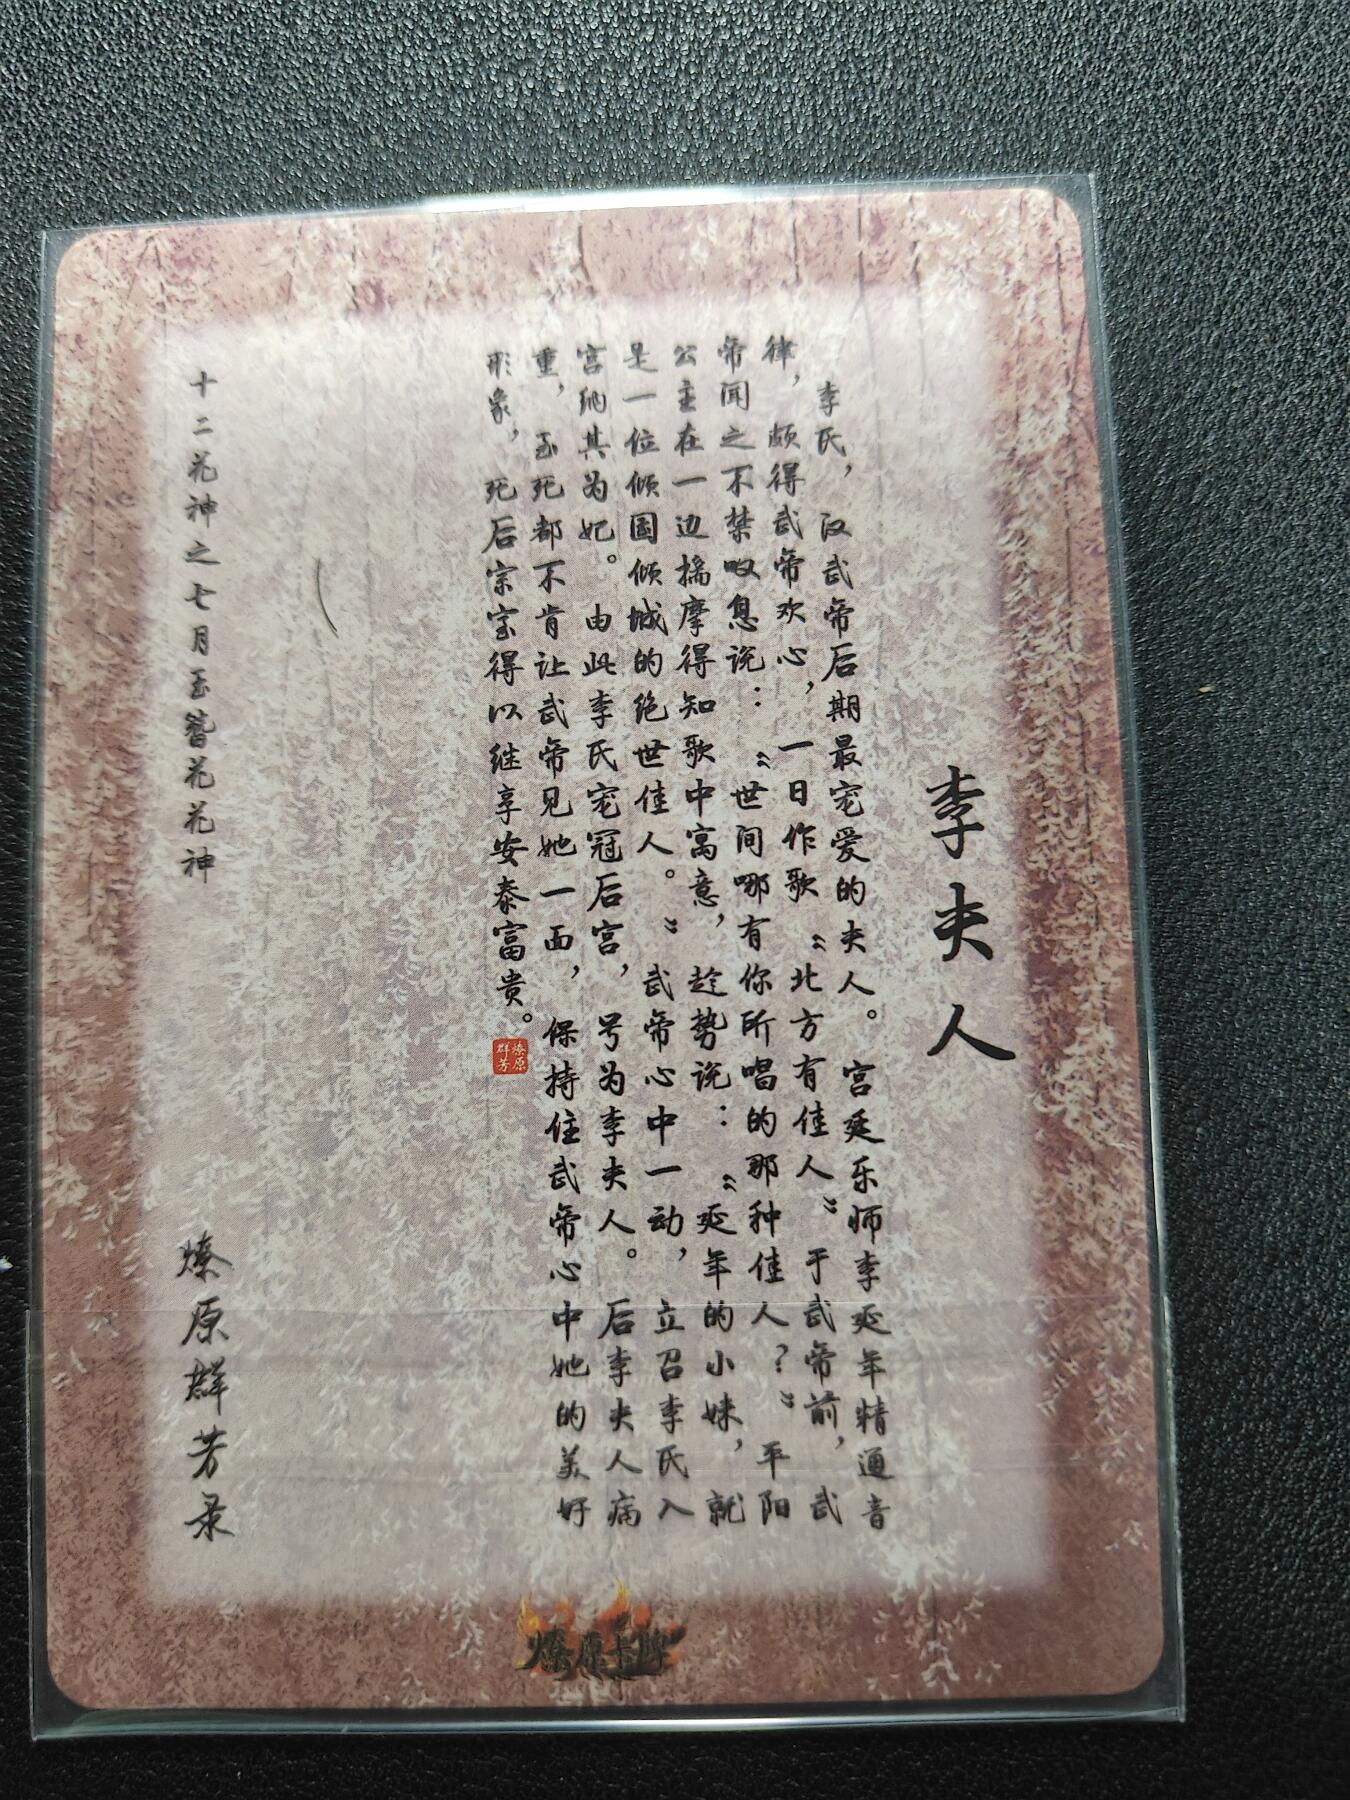 李夫人
李氏，汉武帝后期最宠爱的夫人。宫廷乐师李延年精通音
律，颇得武帝欢心，一日作歌“北方有佳人”于武帝前，武
帝闻之不禁叹息说：“世间哪有你所唱的那种佳人？”平阳
公主在一边揣摩得知歌中寓意，趁势说：“延年的小妹，就
是一位倾国倾城的绝世佳人。”武帝心中一动，立召李氏入
宫纳其为妃。由此李氏宠冠后宫，号为李夫人。后李夫人病
重，至死都不肯让武帝见她一面，保持住武帝心中她的美好
形象，死后宗室得以继享安泰富贵。
燎原群芳
十二花神之七月玉簪花花神
燎原群芳录
燎原卡牌